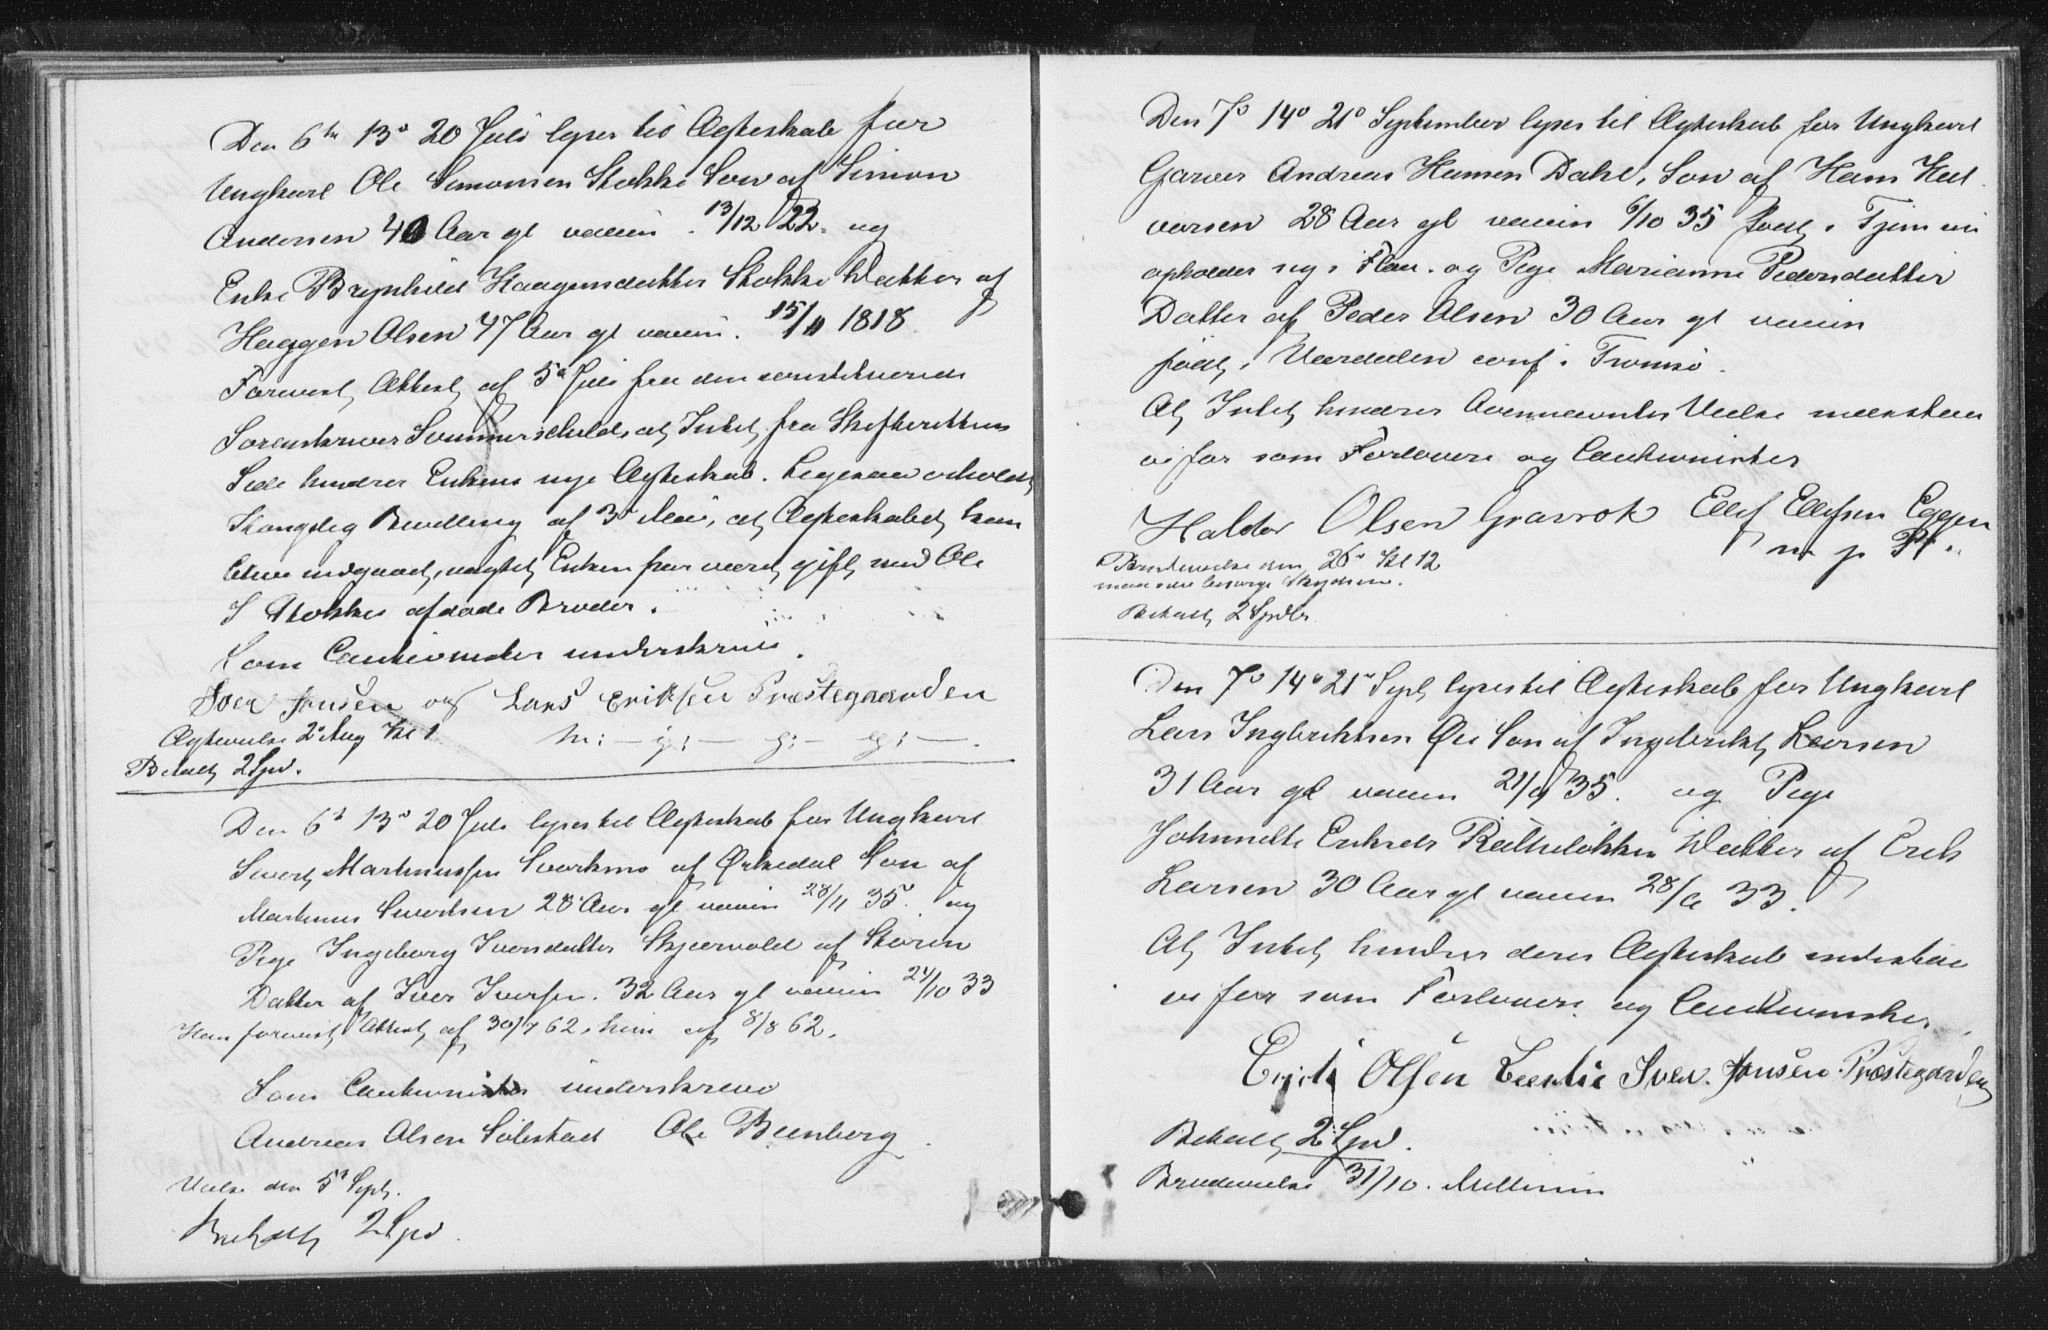 Den 6te 13de 20 Juli lyses til Ægteskab for
Ungkarl Ole Simonsen Stokke Søn af Simon
Andersen 40 Aar gl vaccin. 13/12 22. og
Enke Brynhild Haagensdatter Stokke Datter af
Haagen Olsen 47 Aar gl vaccin. 15/11 1818
Forevist Attest af 5te Juli fra den constituerede
Sorenskriver Sommerschield, at Intet fra Skifterettens
Side hindrer Enkens nye Ægteskab. Ligesaa
Kongelig Bevilling af 3de Mai, at Ægteskabet kan
indgaaes, uagtet Enken har været gift med Ole
S Stokkes afdøde Broder.
Som Cautionister underskrive
Iver Jonsen og Lars Eriksen Præstegaarden
Ægtevielse 2 Aug Kl 1 m: - p: - p: -
Betalt 2 Spd.
Den 6te 13de 20 Juli lyses til Ægteskab for Ungkarl
Sivert Martinussen Svorkmo af Ørkedal Søn af
Martinus Sivertsen 28 Aar gl vaccin 28/11 35. og
Pige Ingeborg Iversdatter Skjærvold af Støren
Datter af Iver Iversen. 32 Aar gl vaccin 24/10 33
Han forevist Attest af 30/7 62, hun af 8/8 62.
Som Cautionister underskreve
Andreas Olsen Solestad Ole Beenberg
Vielse den 5te Sept.
Betalt 2 Spd.
Den 7de 14de 21de September lyses til Ægteskab for Ungkarl
Garver Andreas Hansen Dahl, Søn af Hans Hal
varsen 28 Aar gl vaccin 6/10 35 født i
opholder sig i Flaa. og Pige Marianne Pedersdatter
Datter af Peder Olsen 30 Aar gl vaccin
født i Værdalen conf i Tromsø.
At Intet hindrer Vielse
vi for som Forlovere og Cautionister
Haldor Olsen Gravrok Ellef Ellefsen Eggen
m p P.
Brudevielse den 26de Kl 12
maa selv besørge Skydsen.
Betalt 2 Spdlr.
Den 7de 14de 21de Sept lyses til Ægteskab for Ungkarl
Lars Ingbriktsen Øie Søn af Ingebrikt Larsen
31 Aar gl vaccin 21/9 35. og Pige
Johnmette Eriksdt Datter af Erik
Larsen 30 Aar gl vaccin 28/6 33.
At Intet hindrer deres Ægteskab indestaae
vi for som Forlovere og Cautionister
Erik Olsen Iver Jonsen Præstegarden
Betalt 2 Spd.
Brudevielse 31/10.